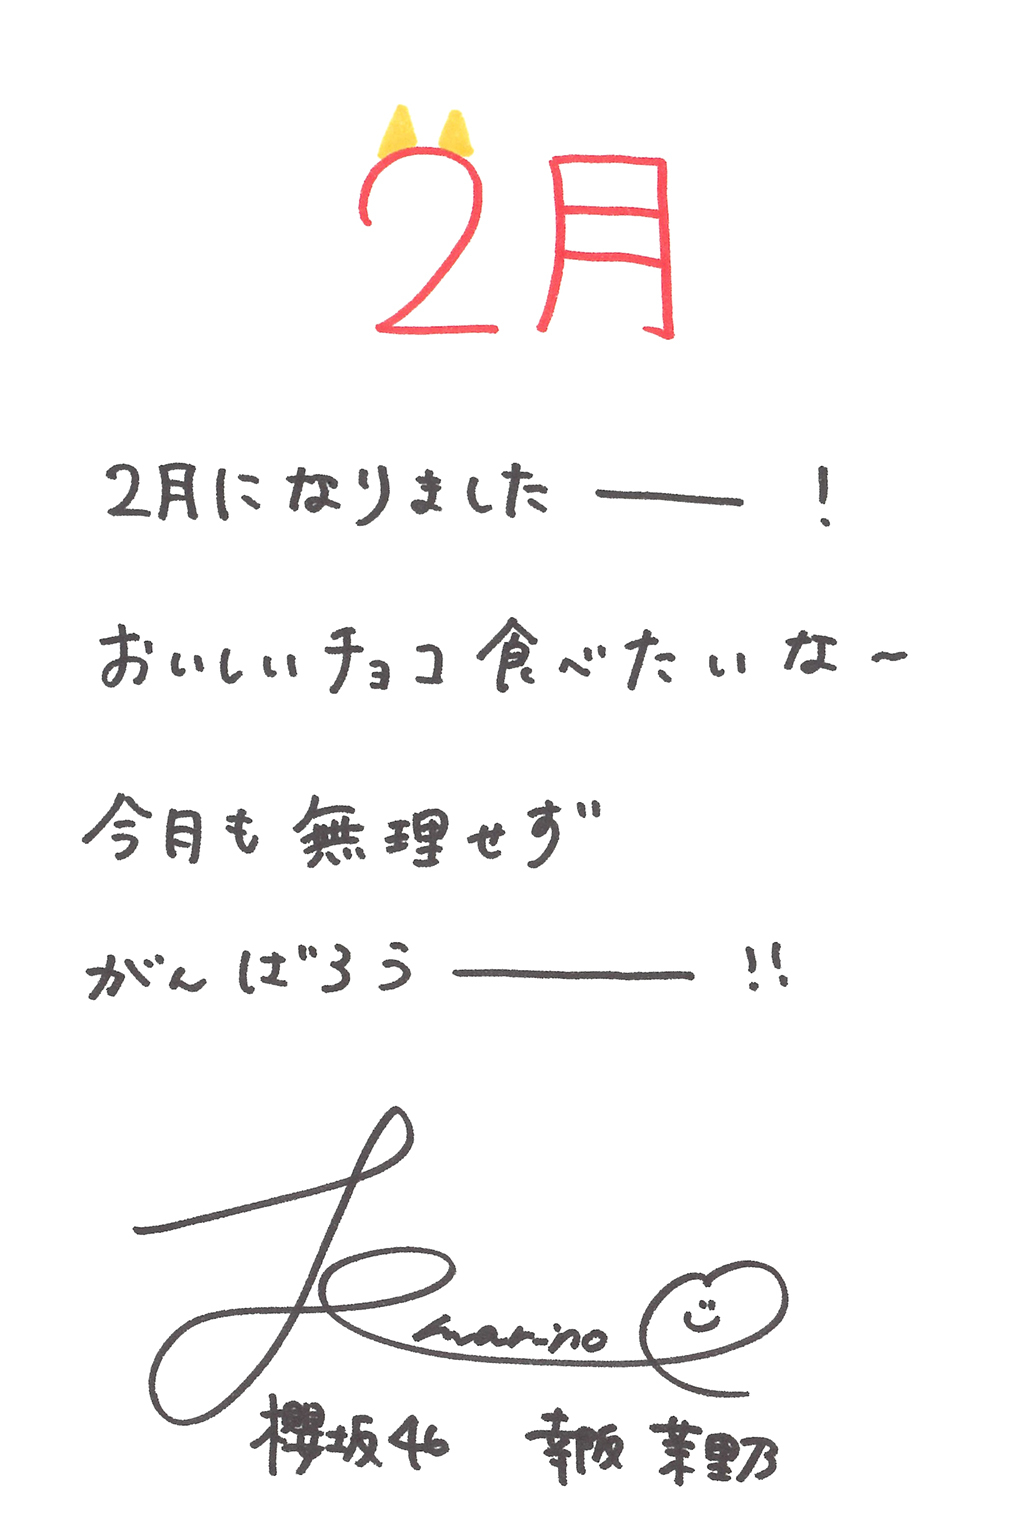 2月
2月になりました ー !
おいしいチョコ食べたいな〜
今月も無理せず
がんばろう ー !!
marino
櫻坂46 幸阪 茉里乃